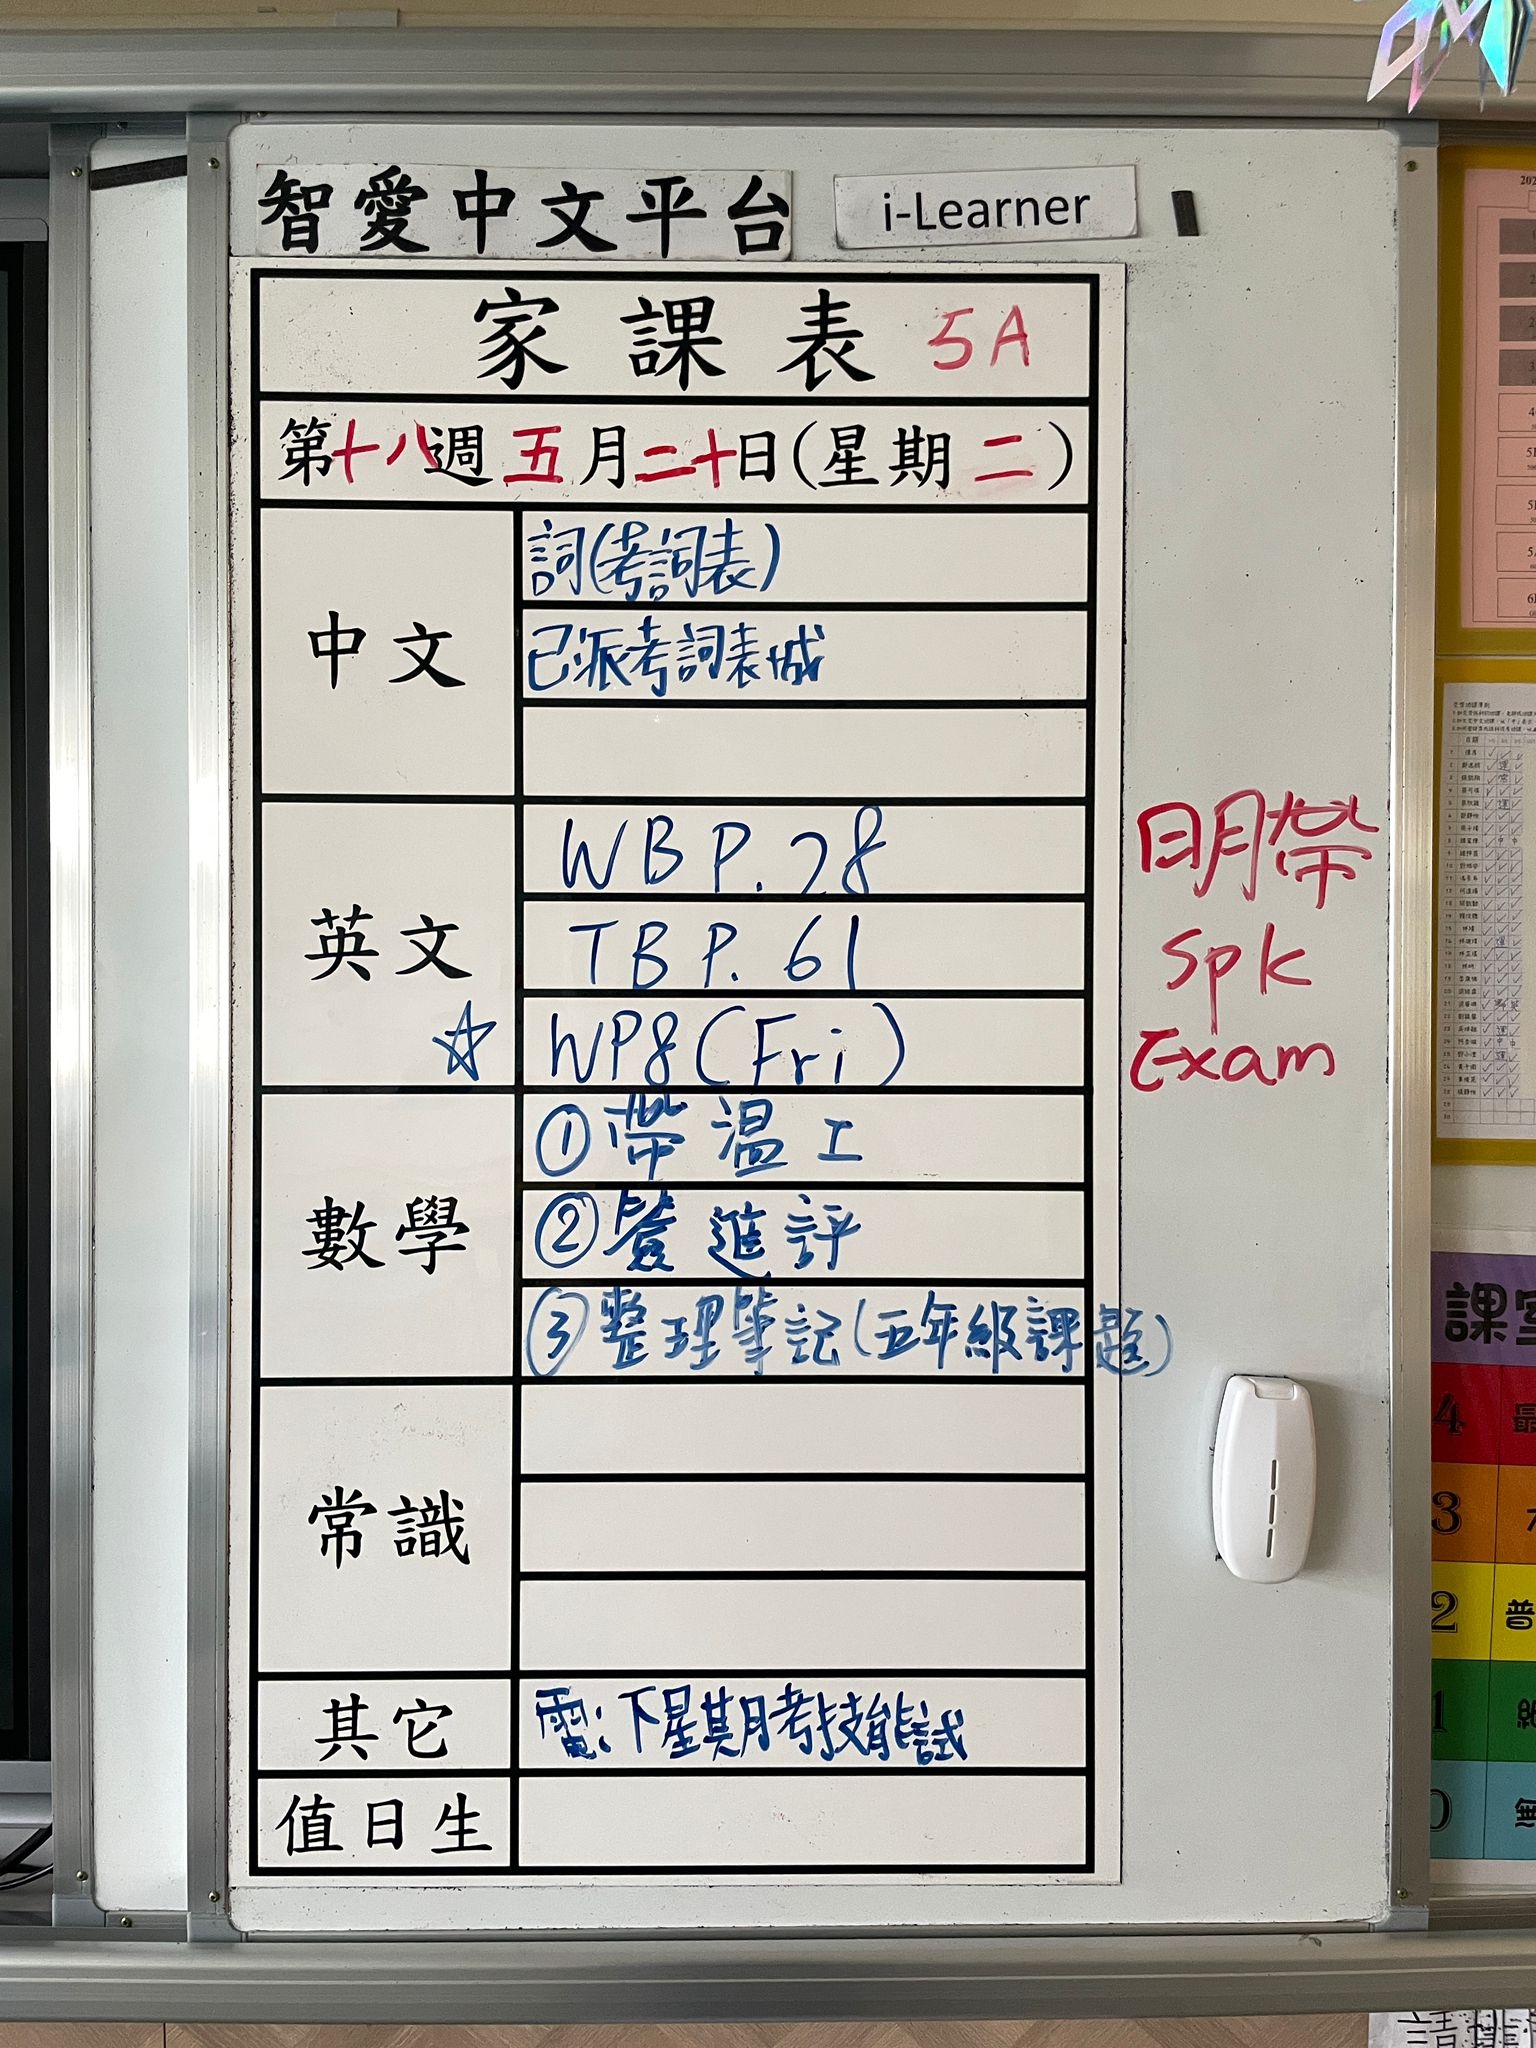 智愛中文平台 i-Learner
家課表 5A
第十八週 五月二十日(星期二)
中文
詞(考詞表)
已派考詞表
英文
WB P.28
TB P.61
☆ WP8(Fri)
明帶
Spk
Exam
數學
①帶溫工
②簽進評
③整理筆記(五年級課題)
常識
其它
電:下星期考技能試
值日生
課室
4
3
2
普
1
0